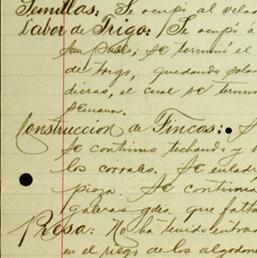 Semillas: Se ocupó al velad
Labor de Trigo: Se ocupó á
San Pablo; se terminó el
de trigo, quedando sola
el cual se termin
semana.
Construccion de Fincas:
Se continuo techando y
los corrales. Se enladr
pieza. Se continua
galeras gdes. que falta
Presa: No ha tenido entrad
en el riego de los algodone